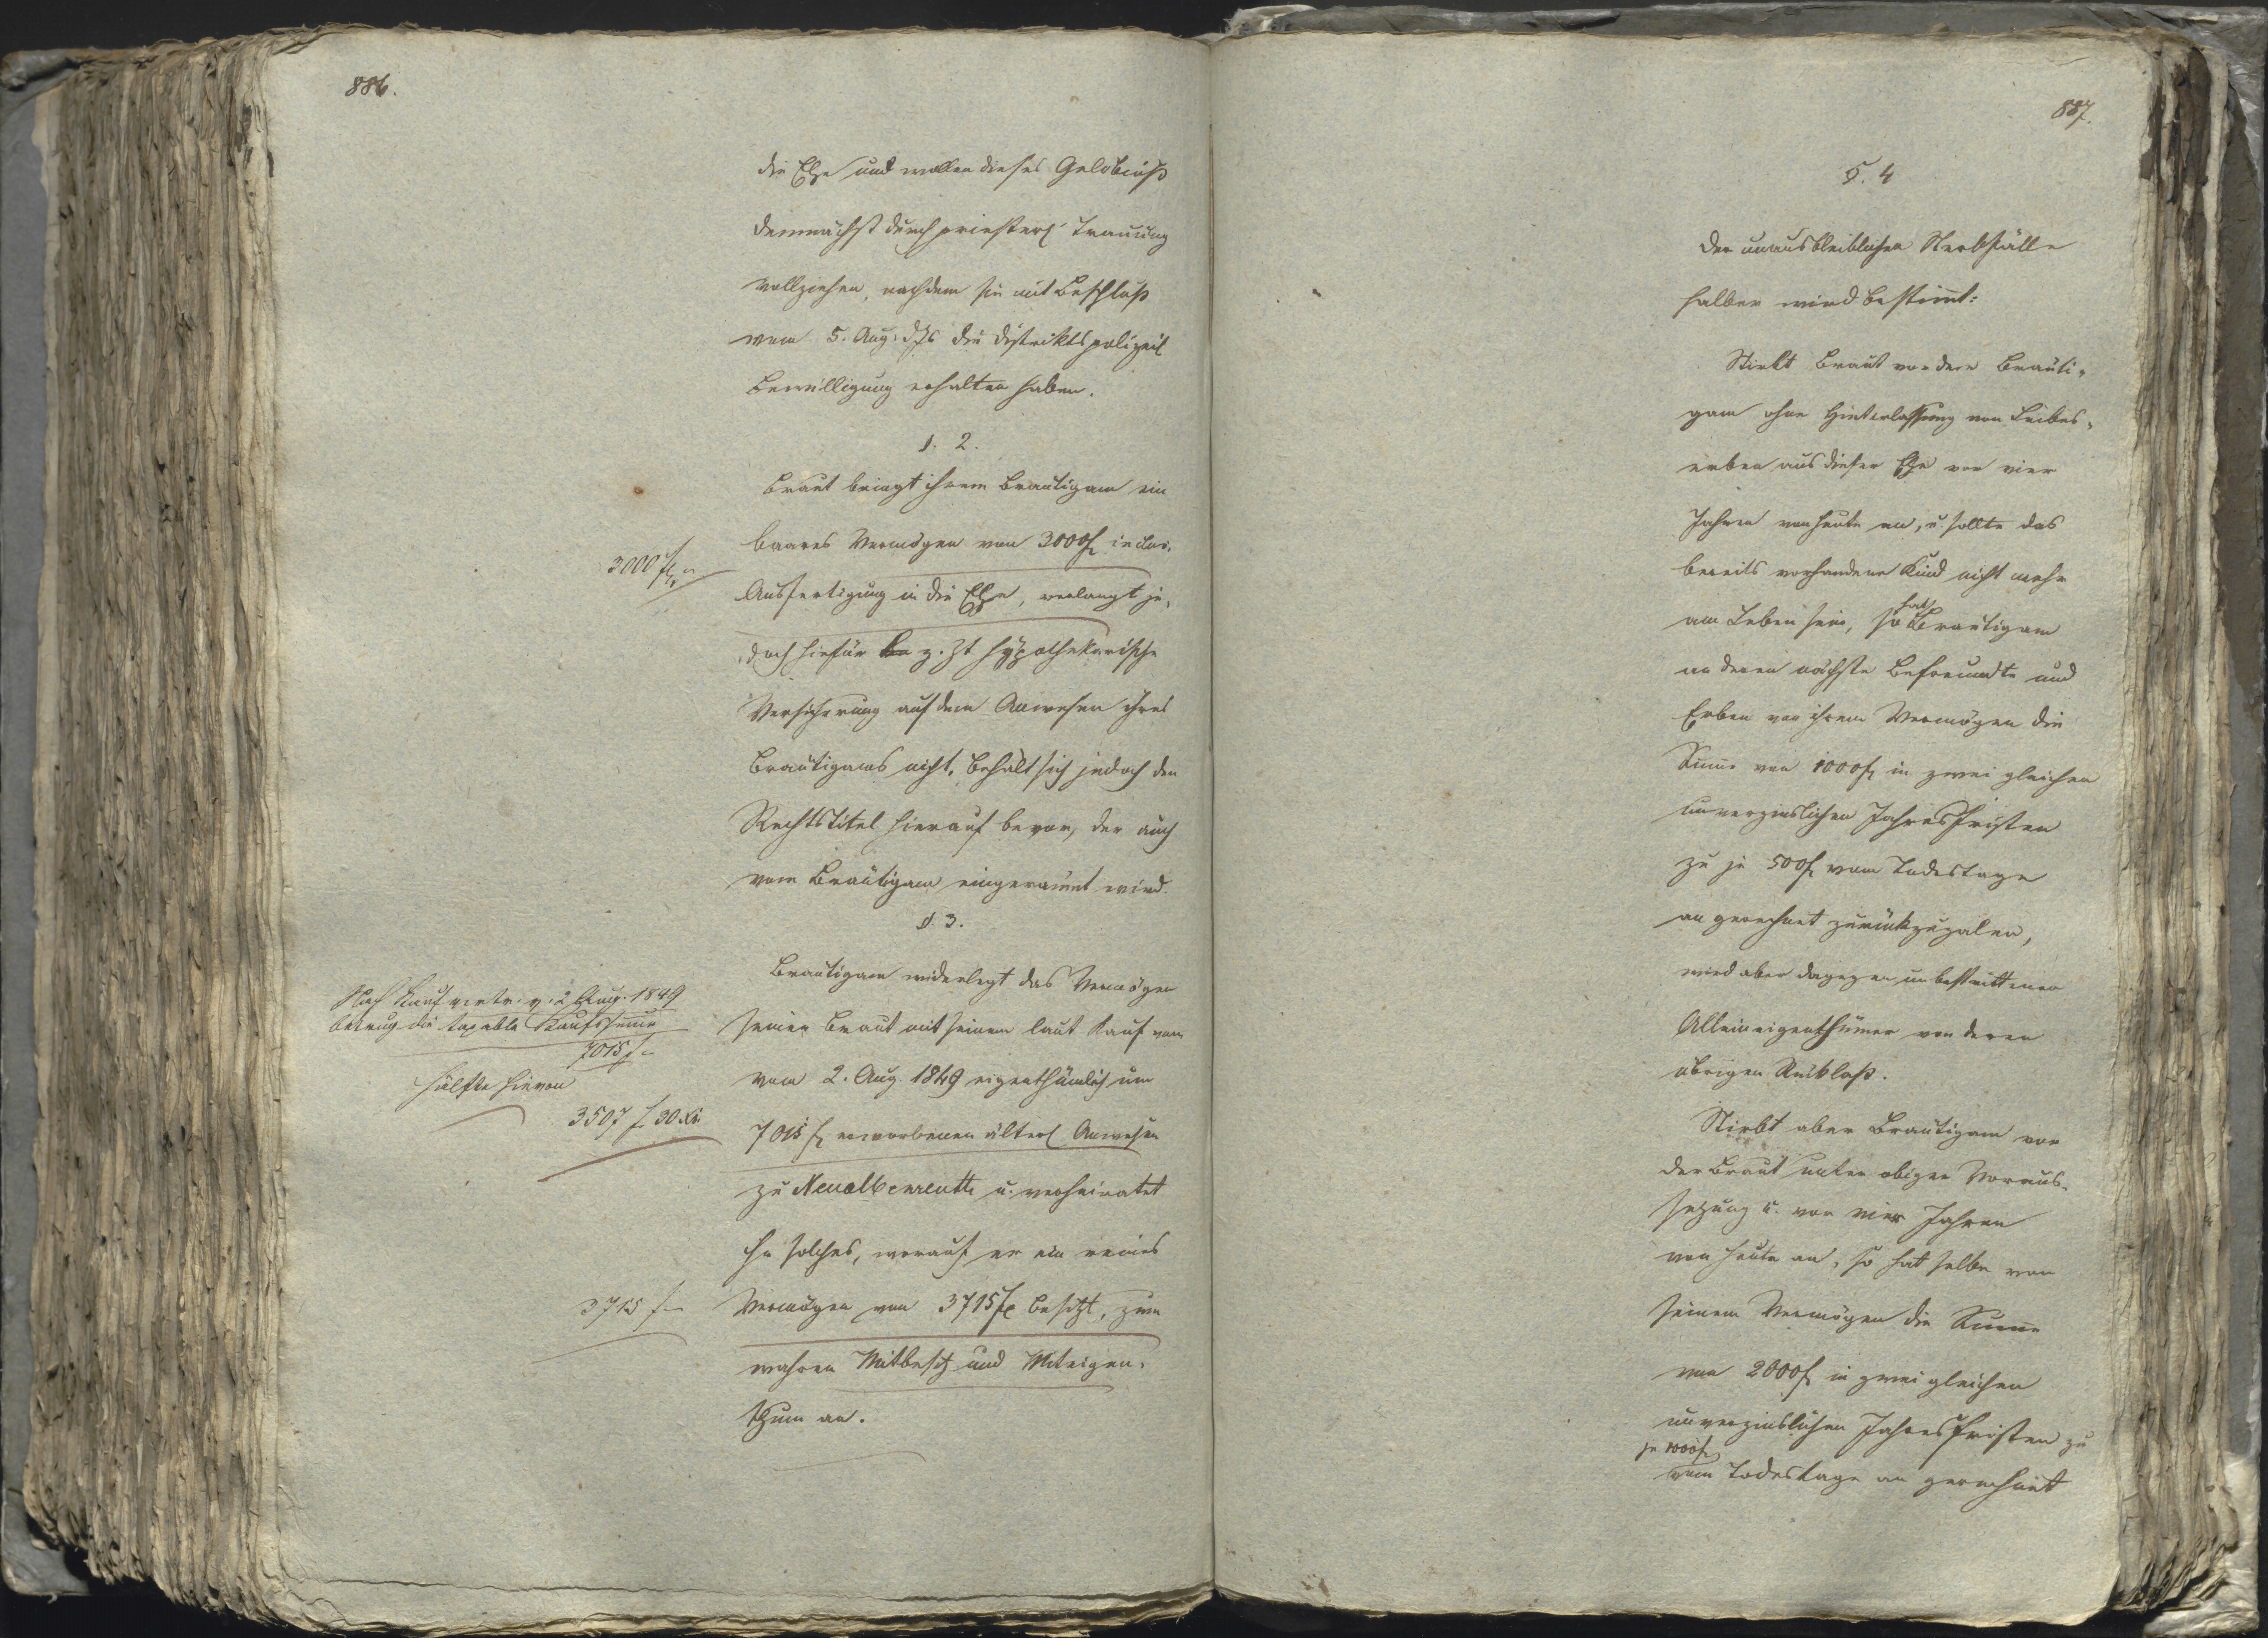 886.
die Ehe und wollen dieses Gelöbniß
demnächst durch priesterl. Trauung
vollziehen, nachdem sie mit Beschluß
vom 5. Aug. d. Js die distriktspolizeil
Bewilligung erhalten haben.
§. 2.
Braut bringt ihrem Bräutigam ein
3000 fl
baares Vermögen von 3000 fl inclus.
Ausfertigung in die Ehe, verlangt je-
doch hiefür z. Zt hypothekarische
Versicherung auf dem Anwesen ihres
Bräutigams nicht, behält sich jedoch den
Rechtstitel hierauf bevor, der auch
vom Bräutigam eingeräumt wird.
§. 3.
Bräutigam widerlegt das Vermögen
Nach Kaufvertr. v. 2 Aug. 1849
betrug die taxable Kaufssumme
7015 f
Hälfte hievon
3507 f 30 Kr
seiner Braut mit seinem laut Kauf vom
vom 2. Aug. 1849 eigenthümlich um
7015 fl erworbenen älterl Anwesen
zu Neualbenreuth u. verheiratet
ihr solches, worauf er ein reines
3715 f
Vermögen von 3715 fl besitzt, zum
wahren Mitbesitz und Miteigen-
thum an.
887.
§. 4
Der unausbleiblichen Sterbfälle
halber wird bestimt:
Stirbt Braut vor dem Bräuti-
gam ohne Hinterlassung von Leibes-
erben aus dieser Ehe vor vier
Jahren von heute an, u. sollte das
bereits vorhandene Kind nicht mehr
am Leben sein, so hat Bräutigam
an deren nächste Befreundte und
Erben von ihrem Vermögen die
Summe von 1000 fl in zwei gleichen
unverzinslichen Jahresfristen
zu je 500 fl vom Todestage
an gerechnet zurückzuzalen,
wird aber dagegen unbestrittener
Alleineigenthümer von deren
übrigen Rücklaß.
Stirbt aber Bräutigam vor
der Braut unter obiger Voraus-
setzung u. vor vier Jahren
von heute an, so hat selbe von
seinem Vermögen die Summe
von 2000 fl in zwei gleichen
unverzinslichen Jahresfristen zu
je 1000 fl
vom Todestage an gerechnet